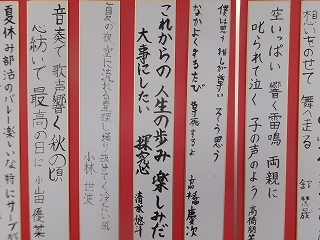 想いをのせて 舞へ走る
空いっぱい 響く雷鳴 両親に
叱られて泣く 子の声のよう
高橋朋
僕は思う 推しが尊い そう思う
なかよくするたび 尊死するよ
高橋慶次
これからの 人生の歩み 楽しみだ
大事にしたい 探究心
清水悠斗
夏の夜 空に流れる
冷たい風
小林 世波
音奏で 歌声響く 秋の頃
心紡いで 最高の日に
小山田慶
夏休み 部活のバレー 楽しいな 特にサーブが